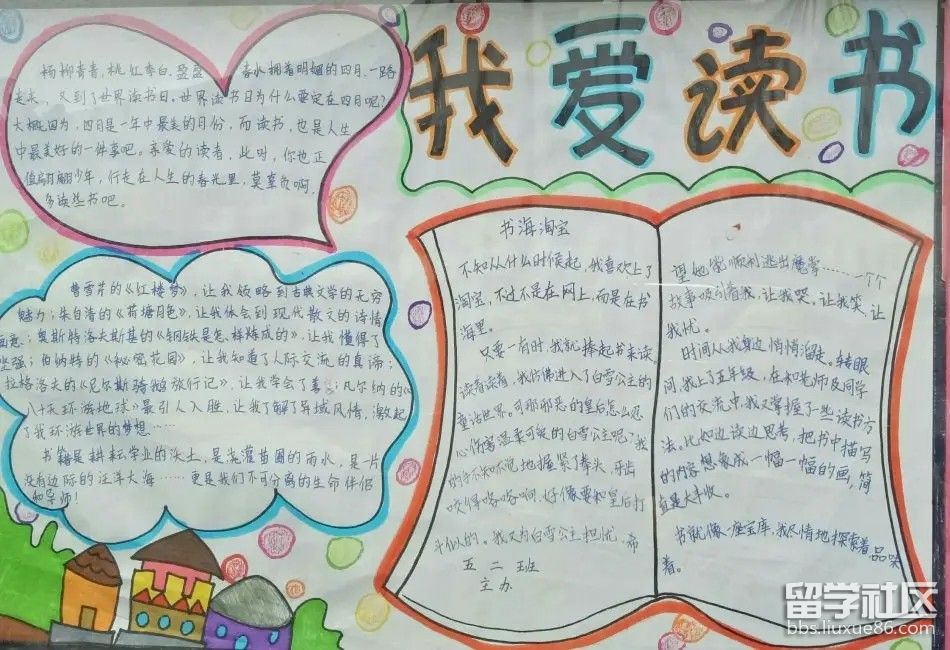 我爱读书
杨柳青青，桃红李白，盈盈春水拥着明媚的四月，一路
走来，又到了世界读书日。世界读书日为什么要定在四月呢？
大概因为，四月是一年中最美的月份，而读书，也是人生
中最美好的一件事吧。亲爱的读者，此时，你也正
值翩翩少年，行走在人生的春光里，莫辜负啊，
多读些书吧。
曹雪芹的《红楼梦》，让我领略到古典文学的无穷
魅力；朱自清的《荷塘月色》，让我体会到现代散文的诗情
画意；奥斯特洛夫斯基的《钢铁是怎样炼成的》，让我懂得了
坚强；伯纳特的《秘密花园》，让我知道了人际交流的真谛；
拉格洛夫的《尼尔斯骑鹅旅行记》，让我学会了善；凡尔纳的《
八十天环游地球》最引人入胜，让我了解了异域风情，激起
了我环游世界的梦想……
书籍是耕耘学业的沃土，是浇灌苗圃的雨水，是一片
没有边际的汪洋大海……更是我们不可分离的生命伴侣
和导师！
书海淘宝
不知从什么时候起，我喜欢上了
淘宝，不过不是在网上，而是在书
海里。
只要一有时，我就捧起书来读
读着读着，我仿佛进入了白雪公主的
童话世界。可那邪恶的皇后怎么忍
心伤害温柔可爱的白雪公主呢？我
的手不知不觉地握紧了拳头，牙齿
咬得咯咯响，好像要和皇后打
斗似的。我又为白雪公主担忧，希
五二班
主办
望她能顺利逃出魔掌……一个个
故事吸引着我，让我哭，让我笑，让
我忧。
时间从我身边悄悄溜走，转眼
间，我上了五年级，在和老师及同学
们的交流中，我又掌握了一些读书方
法。比如边读边思考，把书中描写
的内容想象成一幅一幅的画，简
直是大丰收。
书就像一座宝库，我尽情地探索着品味
着。
留学社区
bbs.liuxue86.com